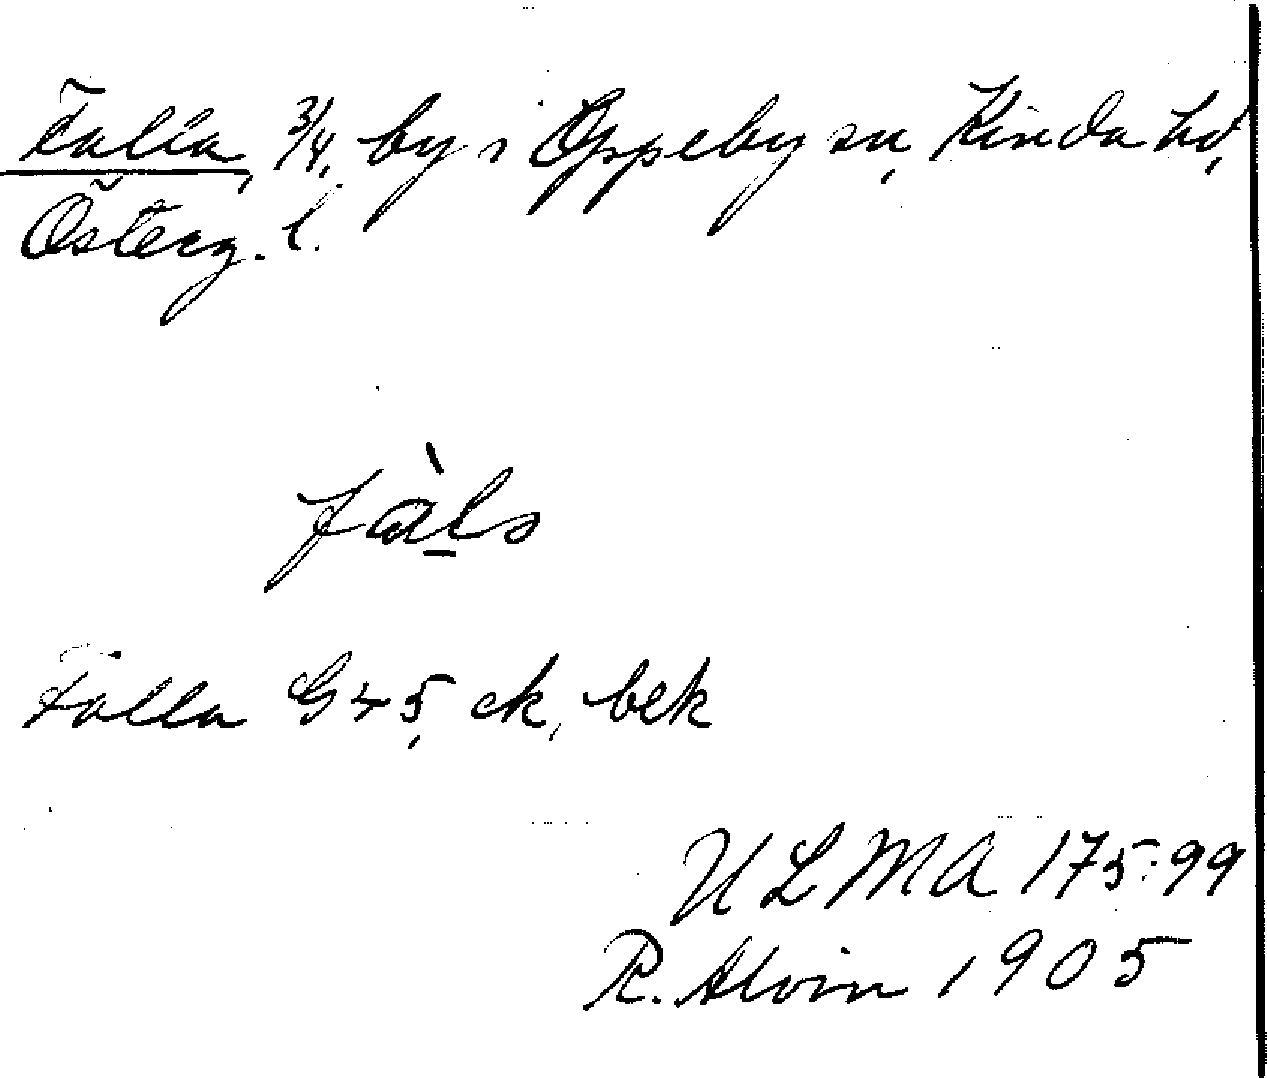 Falla, 3/4, by i Oppeby sn, Kinda hd,
Österg. l.
Falla G45, ek, bek
ULMA 175:99
R. Alvin 1905